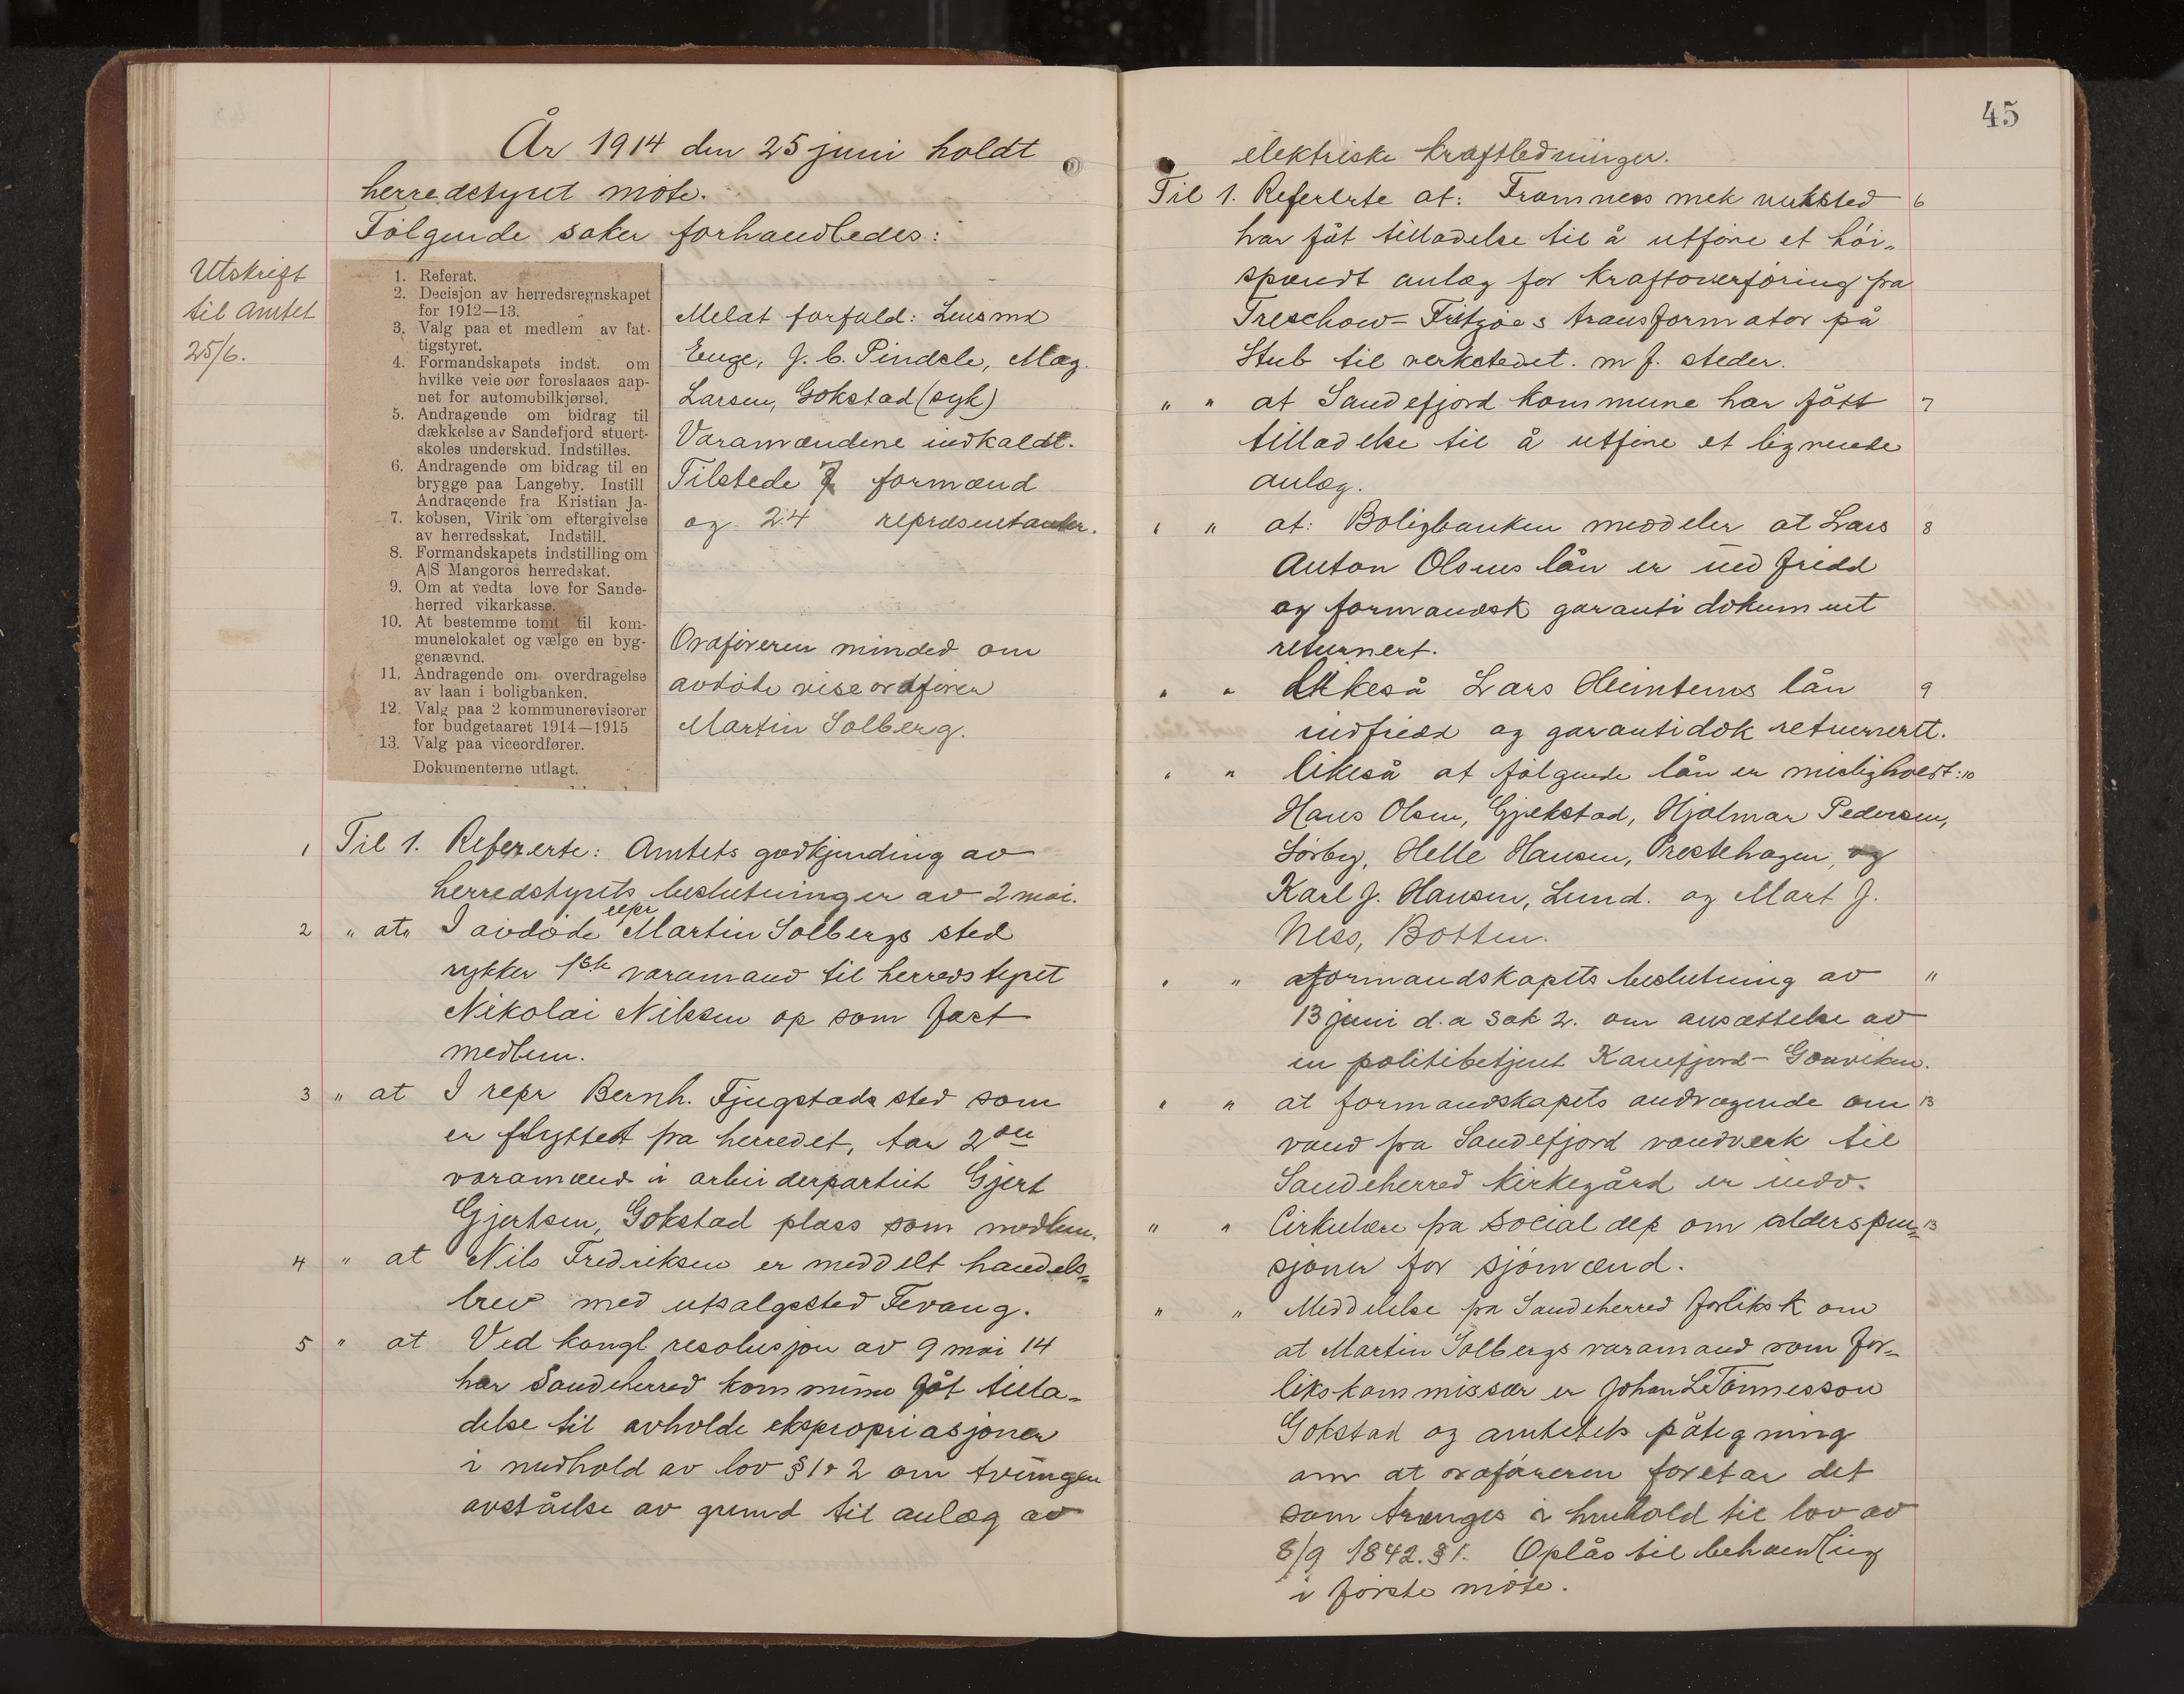 År 1914 den 25 juni holdt
herredstyret møte.
Følgende saker forhandledes:
Utskrift
til amtet
25/6.
1. Referat.
2. Decisjon av herredsregnskapet
for 1912—13.
3. Valg paa et medlem av fat-
tigstyret.
4. Formandskapets indst. om
hvilke veie oør foreslaaes aap-
net for automobilkjørsel.
5. Andragende om bidrag til
dækkelse av Sandefjord stuert-
skoles underskud. Indstilles.
6. Andragende om bidrag til en
brygge paa Langeby. Instill
Andragende fra Kristian Ja-
7. kobsen, Virik om eftergivelse
av herredsskat. Indstill.
8. Formandskapets indstilling om
A|S Mangoros herredskat.
9. Om at vedta love for Sande-
herred vikarkasse.
10. At bestemme tomt til kom-
munelokalet og vælge en byg-
genævnd.
11. Andragende om overdragelse
av laan i boligbanken.
12. Valg paa 2 kommunerevisorer
for budgetaaret 1914—1915
13. Valg paa viceordfører.
Dokumenterne utlagt.
Melat forfald: Lensmd
Enge, J. C. Pindsle, Mag.
Larsen, Gokstad (syk)
Varamændene indkaldt.
Tilstede 7 formænd
og 24 repræsentanter.
Ordføreren minded om
avdøde viseordfører
Martin Solberg.
1 Til 1. Refererte: Amtets godkjending av
herredstyrets beslutninger av 2 mai.
2 " at" I avdøde repr Martin Solbergs sted
rykker 1ste varamand til herredstyret
Nikolai Nilsen op som fast
medlem.
3 " at I repr Bernh. Fjugstads sted som
er flyttet fra herredet, tar 2den
varamand i arbeiderpartiet Gjert
Gjertsen, Gokstad plass som medlem.
4 " at Nils Fredriksen er meddelt handels-
brev med utsalgssted Fevang.
5 " at Ved kongl resolusjon av 9 mai 14
har Sandeherred kommune fåt tilla-
delse til avholde ekspropriasjoner
i medhold av lov § 1 & 2 om tvungen
avståelse av grund til anlæg av
45
elektriske kraftledninger.
Til 1. Refererte at: Framnes mek verksted 6
har fåt tilladelse til å utføre et høi-
spændt anlæg for kraftoverføring fra
Treschow-Fritzøes transformator på
Stub til verkstedet. m fl. steder.
" " at Sandefjord kommune har fått 7
tilladelse til å utføre et lignende
anlæg.
" " at: Boligbanken meddeler at Lars 8
Anton Olsens lån er indfridd
og formandsk garantidokument
returnert.
" " likeså Lars lån 9
indfridd og garantidok returnert.
" " likeså at følgende lån er misligholdt: 10
Hans Olsen, Gjekstad, Hjalmar Pedersen,
Sørby, Helle Hansen, Prestehagen, og
Karl J. Hansen, Lund. og Mart J.
Ness, Botten.
" " formandskapets beslutning av "
13 juni d.a sak 2. om ansættelse av
en politibetjent Kamfjord-
" " at formandskapets andragende om 13
vand fra Sandefjord vandverk til
Sandeherred kirkegård er indv.
" " Cirkulære fra Social dep om alderspen- 13
sjoner for sjømænd.
" " Meddelelse fra Sandeherred forliksk om
at Martin Solbergs varamand som for-
likskommissær er Johan L. Tønnesson
Gokstad og amtets påtegning
om at ordføreren foretar det
som trenges i henhold til lov av
8/9 1842. § 1. Oplås til behandling
i første møte.